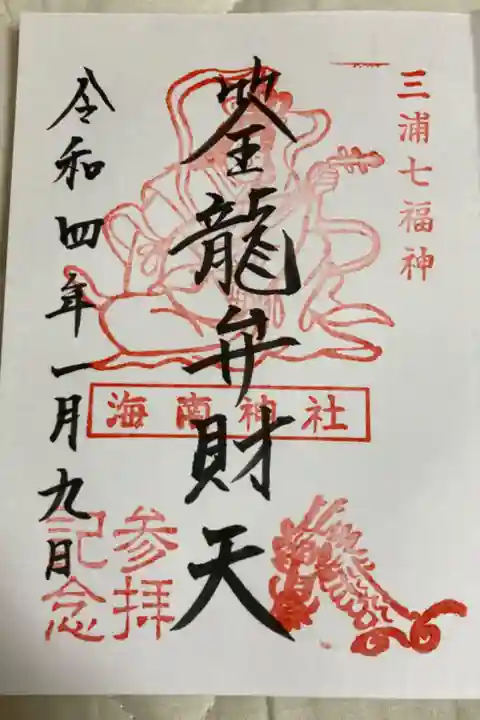 三浦七福神
筌龍弁財天
海南神社
令和四年一月九日
参拝
記念